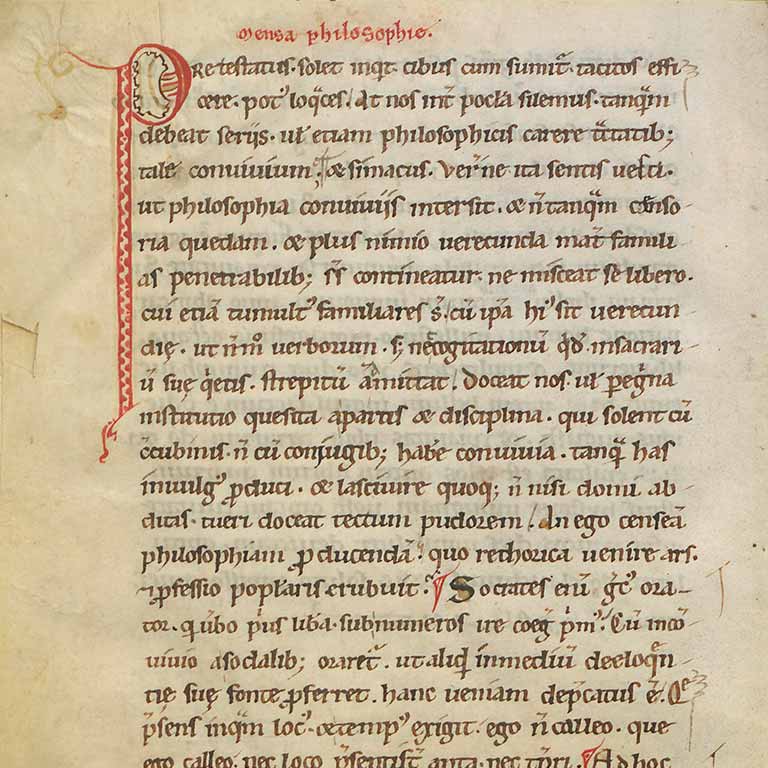 Mensa philosophie.
Pretestatus. solet inq̄t. cibus cum sumit̄. tacitos effi-
cere. potꝰ loq̄ces. At nos int̄ pocl̄a silemus. tanq̄m
debeat serijs. ul̄ etiam philosophicis carere t̄ctatib;
tale conuiuium. & simacus. Ver̄ ne ita sentis uecti.
ut philosophia conuiuijs intersit. & n̄ tanq̄m censo-
ria quedam. & plus nimio uerecunda mat̄ famili-
as penetrabilib; s̄s contineatur. ne misceat se libero.
cui etiā tumultꝰ familiares s̄. cū ip̄a hiꝰ sit uerecun-
dię. ut n̄ m̊ uerborum. s; nec cogitationū q̇d. insacrari-
ū suę q̇etis. strepitū āmittat. Doceat nos. ul̄ peg̃na
institutio quesita apartis & disciplina. qui solent cū
ꝯcubinis. n̄ cū conjugib; habe conuiuia. tanq̄ has
inuulgꝰ ꝓduci. & lasciuire quoq; n̄ nisi domi ab-
ditas. tueri doceat tectum pudorem. An ego censeā
philosophiam ꝓducendā. quo rethorica uenire ars.
⁊ ꝓfessio popl̄aris erubuit. Socrates eni ḡcꝰ ora-
tor. q̇ ūbo p̓us lib̓a. sub numeros ire coeg̓ p̓mꝰ. Cū incō-
uiuio a sodalib; oraret̄. ut aliqd̓ in mediū de eloq̄n-
tię suę fonte ꝓferret. hanc ueniam dep̄catus ē. Q̄
p̄sens inq̄m locꝰ. & tempꝰ exigit. ego n̄ calleo. que
ego calleo. nec loco p̄senti st̄ apta. nec tp̄ri. Ad hoc